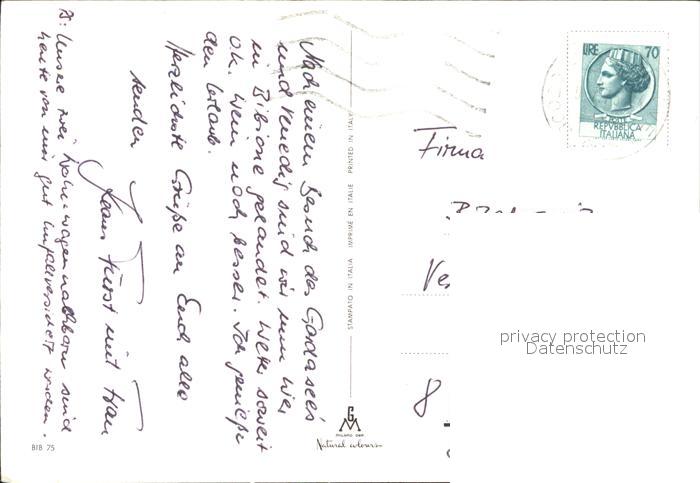 Nach einem Besuch des Gardasees
und Venedig sind wir nun hier
in Bibione gelandet. Wetter soweit
o.k. Wein noch besser. Ich genieße
den Urlaub.
Herzlichste Grüße an Euch alle
senden
Fürst mit Frau
Unsere zwei Wohnwagennachbarn sind
heute von mir gut unfallversichert worden.
BIB 75
STAMPATO IN ITALIA IMPRIMÉ EN ITALIE PRINTED IN ITALY
GM
MILANO
Natural colours
LIRE 70
POSTE
REPVBBLICA
ITALIANA
Firma
8
privacy protection
Datenschutz